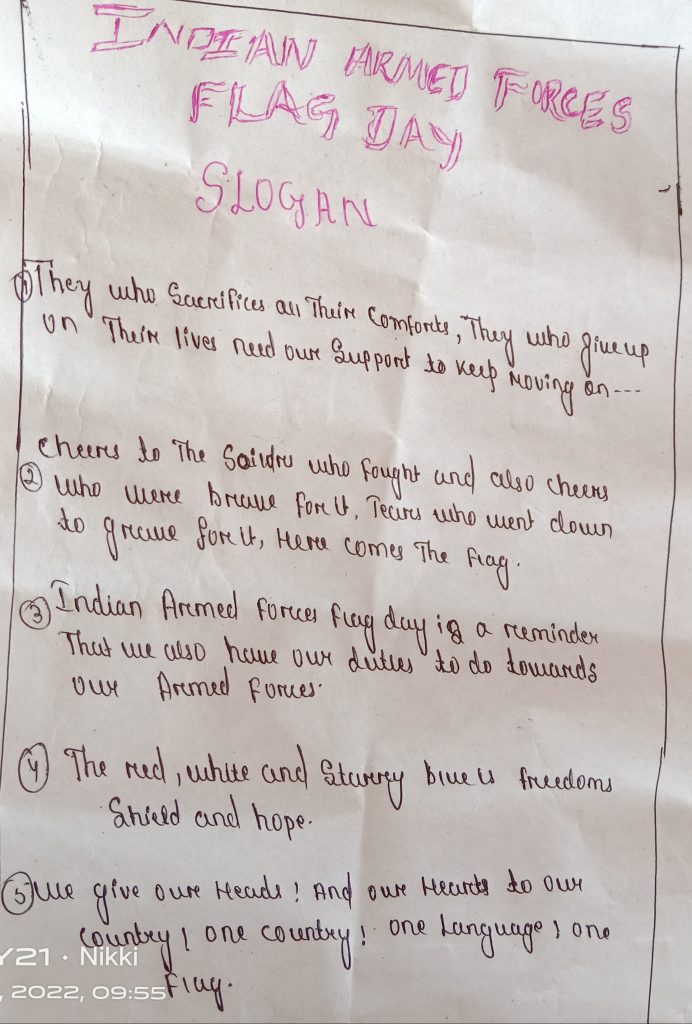 INDIAN ARMED FORCES
FLAG DAY
SLOGAN
① They who Sacrifices all Their Comforts, They who give up
on Their lives need our Support to keep Moving on---
cheers to The Soildrs who fought and also cheers
② who were brave for it, Tears who went down
to grave for it, Here comes The flag.
③ Indian Armed forces flag day is a reminder
That we also have our duties to do towards
our Armed forces.
④ The red, white and Starry blue is freedoms
Shield and hope.
⑤ We give our Heads! And our Hearts to our
country! one country! one Language! one
Flag.
Y21 · Nikki
, 2022, 09:55